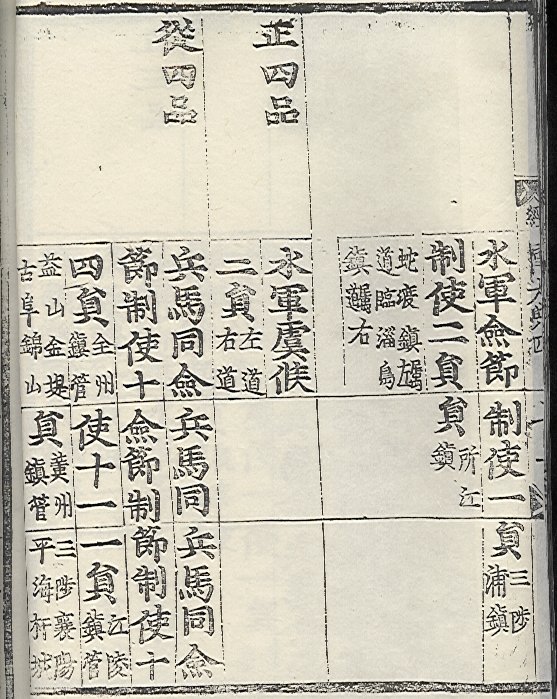 經國大典四
正四品
從四品
水軍僉節
制使二員
蛇渡鎮屬
道臨淄島
鎮屬右
水軍虞候
二員左道
右道
兵馬同僉
節制使十
四員全州
鎮管
益山金堤
古阜錦山
制使一
員所江
鎮
兵馬同
僉節制
使十一
員黃州
鎮管
員三陟
浦鎮
兵馬同僉
節制使十
一員江陵
鎮管
三陟襄陽
平海杆城